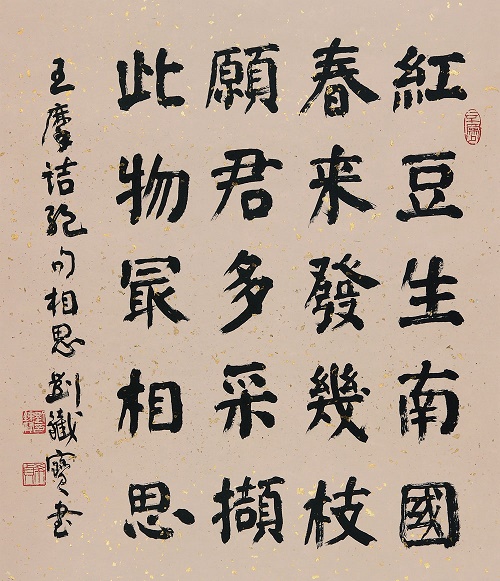 紅豆生南國
春来發幾枝
願君多采擷
此物最相思
王摩詰絕句相思劉鐵寶書